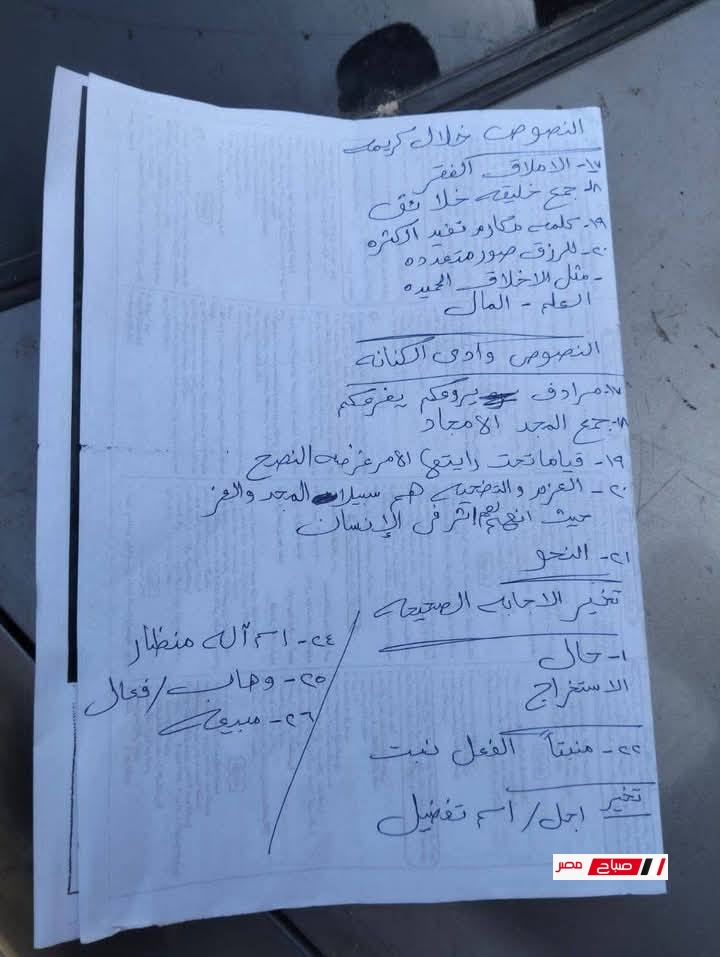 النصوص خلال كريمه
١٧- الاملاق الفقر
١٨- جمع خليقه خلائق
١٩- كلمه مكارم تفيد الكثره
٢٠- للرزق صور متعدده
- مثل الاخلاق الحميده
العلم - المال
النصوص وادى الكنانه
١٧- مرادف يروعكم يفزعكم
١٨- جمع المجد الامجاد
١٩- قياما تحت رايتها الامر غرضه النصح
٢٠- العزم والتضحيه هم سبيلا المجد والعز
حيث انهم لهم اثر فى الإنسان
٢١- النحو
تخير الاجابه الصحيحه
١- حال
الاستخراج
٢٢- منبتاً الفعل نبت
تخير اجل / اسم تفضيل
٢٤- اسم آله منظار
٢٥- وهاب / فعال
٢٦- مبيعه
صباح مصر